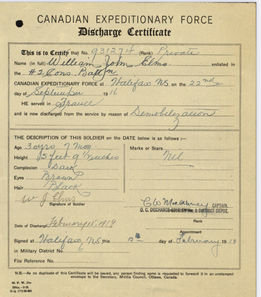 CANADIAN EXPEDITIONARY FORCE
Discharge Certificate
This is to Certify that No. 931274 (Rank) Private
Name (in full) William John Elms enlisted in
the #2 Cons. Battn
CANADIAN EXPEDITIONARY FORCE at Halifax NS on the 22nd
day of September 1916
HE served in France
and is now discharged from the service by reason of Demobilization
THE DESCRIPTION OF THIS SOLDIER on the DATE below is as follows:—
Age Marks or Scars
Height 5 feet 9 inches Nil
Complexion Dark
Eyes Brown
Hair Black
W J Elms
Signature of Soldier CAPTAIN
Date of Discharge February 15 1919 O. C. DISCHARGE DISTRICT DEPOT.
Signed at Halifax, NS this day of February 1919
in Military District No.
File Reference No.
N.B.—As no duplicate of this Certificate will be issued, any person finding same is requested to forward it in an unstamped
envelope to the Secretary, Militia Council, Ottawa, Canada.